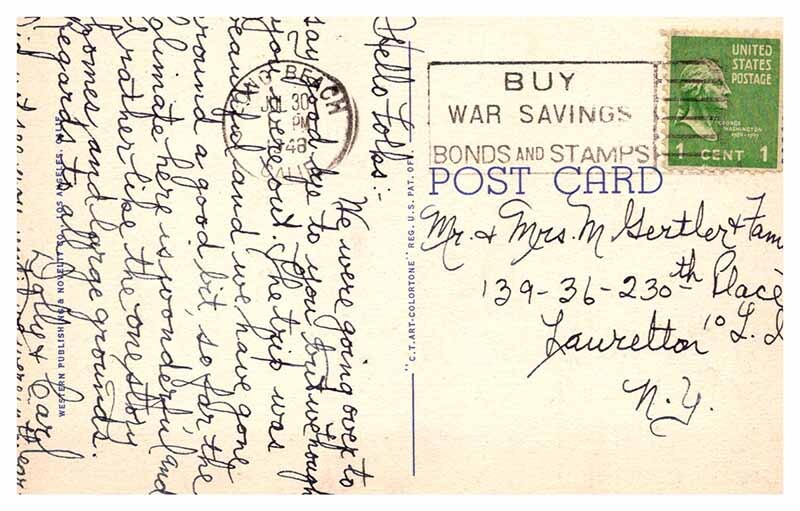 Hello Folks:-
We were going over to
say good bye to you but we though
you were out. The trip was
beautiful and we have gone
around a good bit, so far the
climate here is wonderful and
I rather like the one story
homes, and large grounds.
Regards to all
& Carl
WESTERN PUBLISHING & NOVELTY CO., LOS ANGELES, CALIF.
"C.T. ART-COLORTONE" REG. U.S. PAT. OFF.
LONG BEACH
JUL 30
PM
CALIF
BUY
WAR SAVINGS
BONDS AND STAMPS
UNITED
STATES
POSTAGE
GEORGE
WASHINGTON
1789-1797
1 CENT 1
POST CARD
Mr. & Mrs. M Gertler & Fam
139-36-230th Place
Laurelton 10 L.I
N.Y.